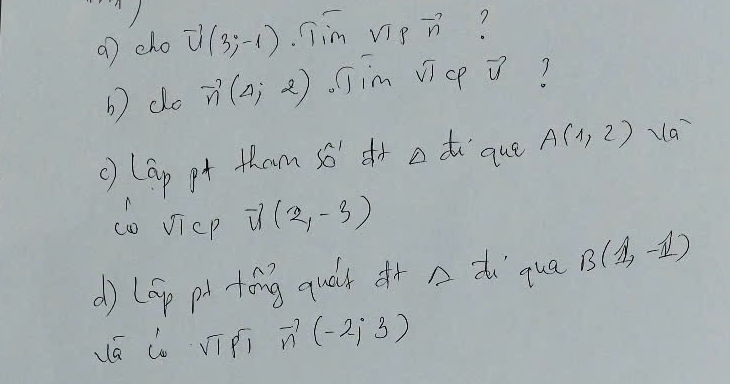 a) cho u⃗(3;-1). Tìm VTP n⃗ ?
b) cho n⃗(1; 2). Tìm VTCP u⃗ ?
c) Lập pt tham số đt Δ đi qua A(1, 2) và
có VTCP u⃗(2,-3)
d) Lập pt tổng quát đt Δ đi qua B(1, -1)
và có VTPT n⃗(-2; 3)